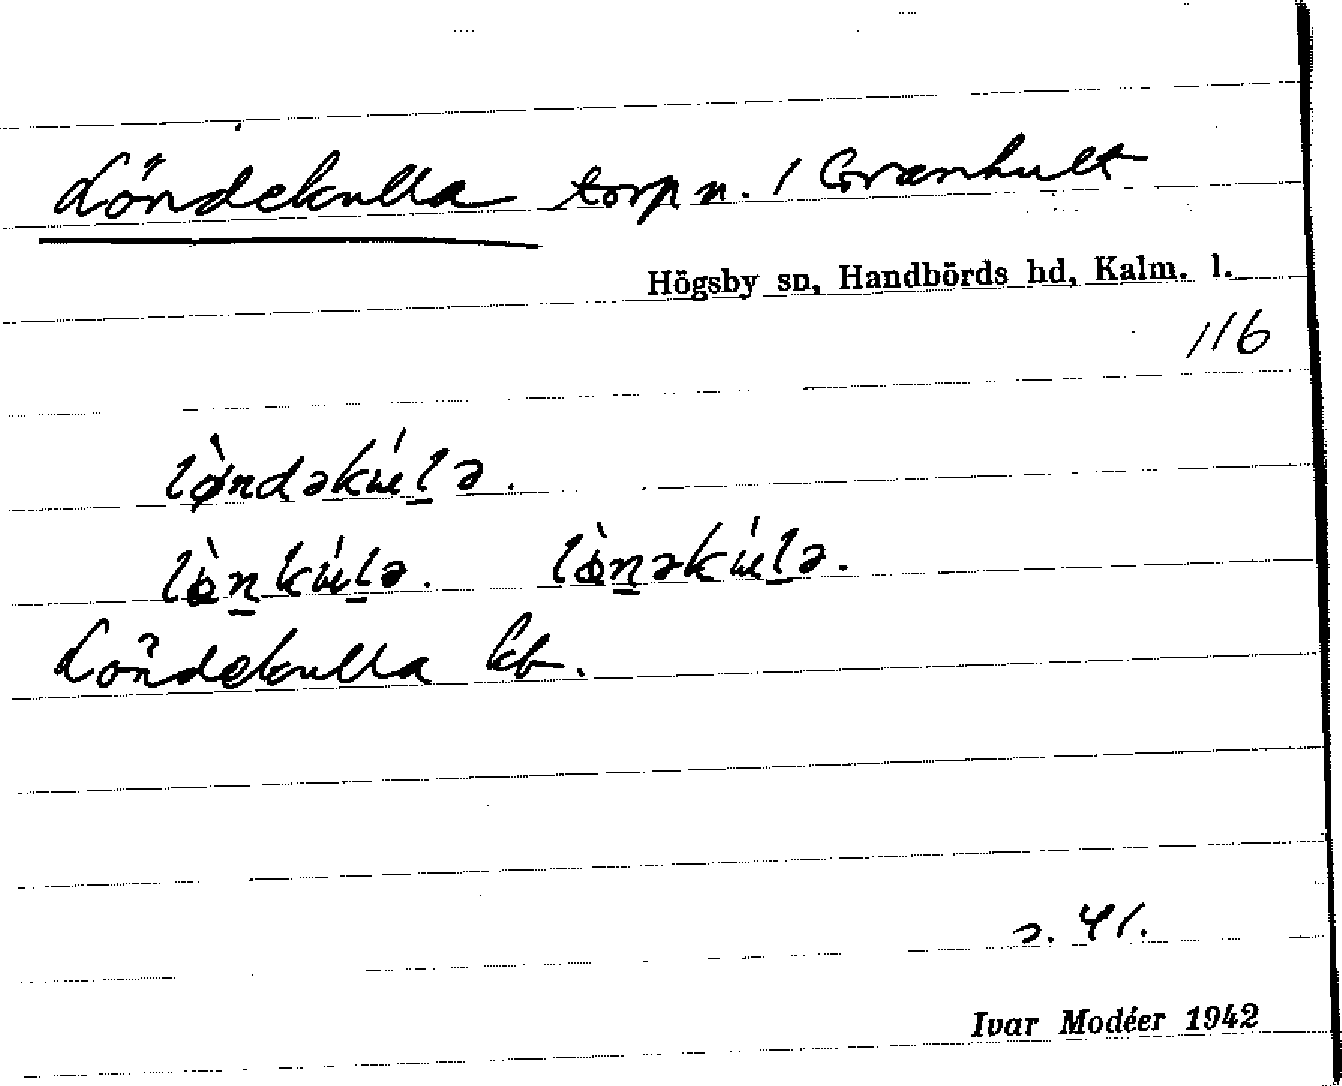 Löndekulla torp n. / Granhult
Högsby sn, Handbörds hd, Kalm. l.
116
lø̀ndəkúl̲ə.
lɵ̀n̲kúl̲ə. lɵ̀n̲əkúl̲ə.
Löndekulla kb.
s. 41.
Ivar Modéer 1942